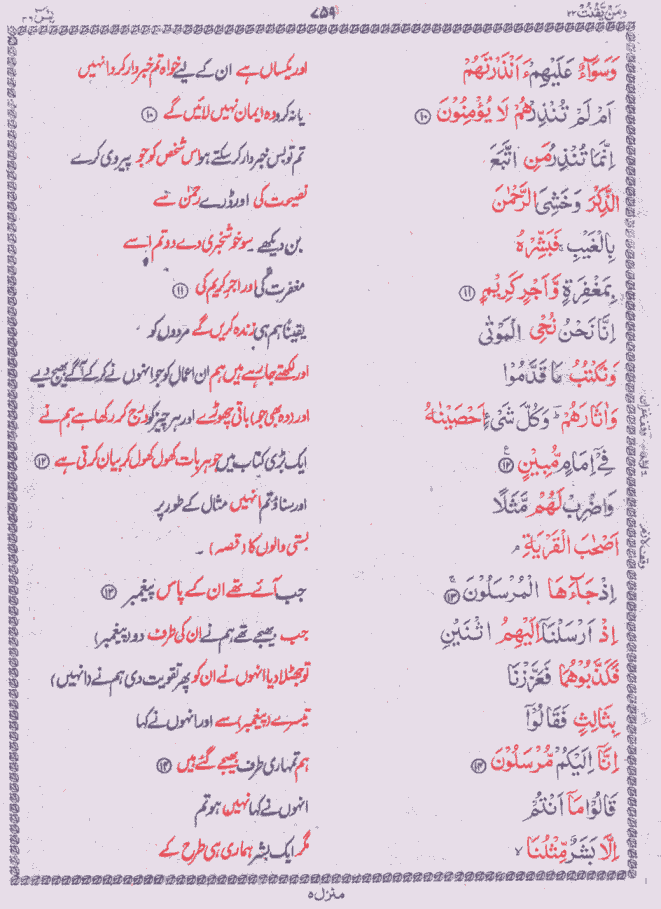 ومن يقنت ٢٢ ٧٥٩ يٰس ٣٦
وَسَوَآءٌ عَلَيْهِمْ ءَاَنْذَرْتَهُمْ اور یکساں ہے ان کے لیے خواہ تم خبردار کرو انہیں
اَمْ لَمْ تُنْذِرْهُمْ لَا يُؤْمِنُوْنَ ⑩ یا نہ کرو وہ ایمان نہیں لائیں گے ⑩
اِنَّمَا تُنْذِرُ مَنِ اتَّبَعَ تم تو بس خبردار کر سکتے ہو اس شخص کو جو پیروی کرے
الذِّكْرَ وَخَشِىَ الرَّحْمٰنَ نصیحت کی اور ڈرے رحمٰن سے
بِالْغَيْبِ فَبَشِّرْهُ بن دیکھے۔ سو خوشخبری دے دو تم اسے
بِمَغْفِرَةٍ وَّاَجْرٍ كَرِيْمٍ ⑪ مغفرت کی اور اجرِ کریم کی ⑪
اِنَّا نَحْنُ نُحْىِ الْمَوْتٰى یقیناً ہم ہی زندہ کریں گے مردوں کو
وَنَكْتُبُ مَا قَدَّمُوْا اور لکھتے جا رہے ہیں ہم ان اعمال کو جو انہوں نے کر کے آگے بھیج دیے
وَاٰثَارَهُمْ ؕ وَكُلَّ شَىْءٍ اَحْصَيْنٰهُ اور (وہ بھی جو) باقی چھوڑے اور ہر چیز کو درج کر رکھا ہے ہم نے
فِىْٓ اِمَامٍ مُّبِيْنٍ ⑫ ایک بڑی کتاب میں جو ہر بات کھول کھول کر بیان کرتی ہے ⑫
وَاضْرِبْ لَهُمْ مَّثَلًا اور سناؤ تم انہیں مثال کے طور پر
اَصْحٰبَ الْقَرْيَةِ ۘ بستی والوں کا (قصہ) ۔
اِذْ جَآءَهَا الْمُرْسَلُوْنَ ⑬ جب آئے تھے ان کے پاس پیغمبر ⑬
اِذْ اَرْسَلْنَآ اِلَيْهِمُ اثْنَيْنِ جب بھیجے تھے ہم نے ان کی طرف دو (پیغمبر)
فَكَذَّبُوْهُمَا فَعَزَّزْنَا تو جھٹلا دیا انہوں نے ان کو پھر تقویت دی ہم نے (انہیں)
بِثَالِثٍ فَقَالُوْٓا تیسرے (پیغمبر) سے اور انہوں نے کہا
اِنَّآ اِلَيْكُمْ مُّرْسَلُوْنَ ⑭ ہم تمہاری طرف بھیجے گئے ہیں ⑭
قَالُوْا مَآ اَنْتُمْ انہوں نے کہا نہیں ہو تم
اِلَّا بَشَرٌ مِّثْلُنَا ۙ مگر ایک بشر ہماری ہی طرح کے
منزل ۵